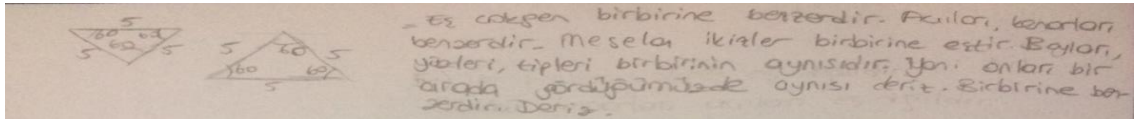 5
60 60
60
5 5
5 60 5
60 60
5
- Eş çokgen birbirine benzerdir. Açıları, kenarları
benzerdir. Mesela ikizler birbirine eştir. Boyları,
yüzleri, tipleri birbirinin aynısıdır. Yani onları bir
arada gördüğümüzde aynısı deriz. Birbirine ben-
zerdir. Deriz.